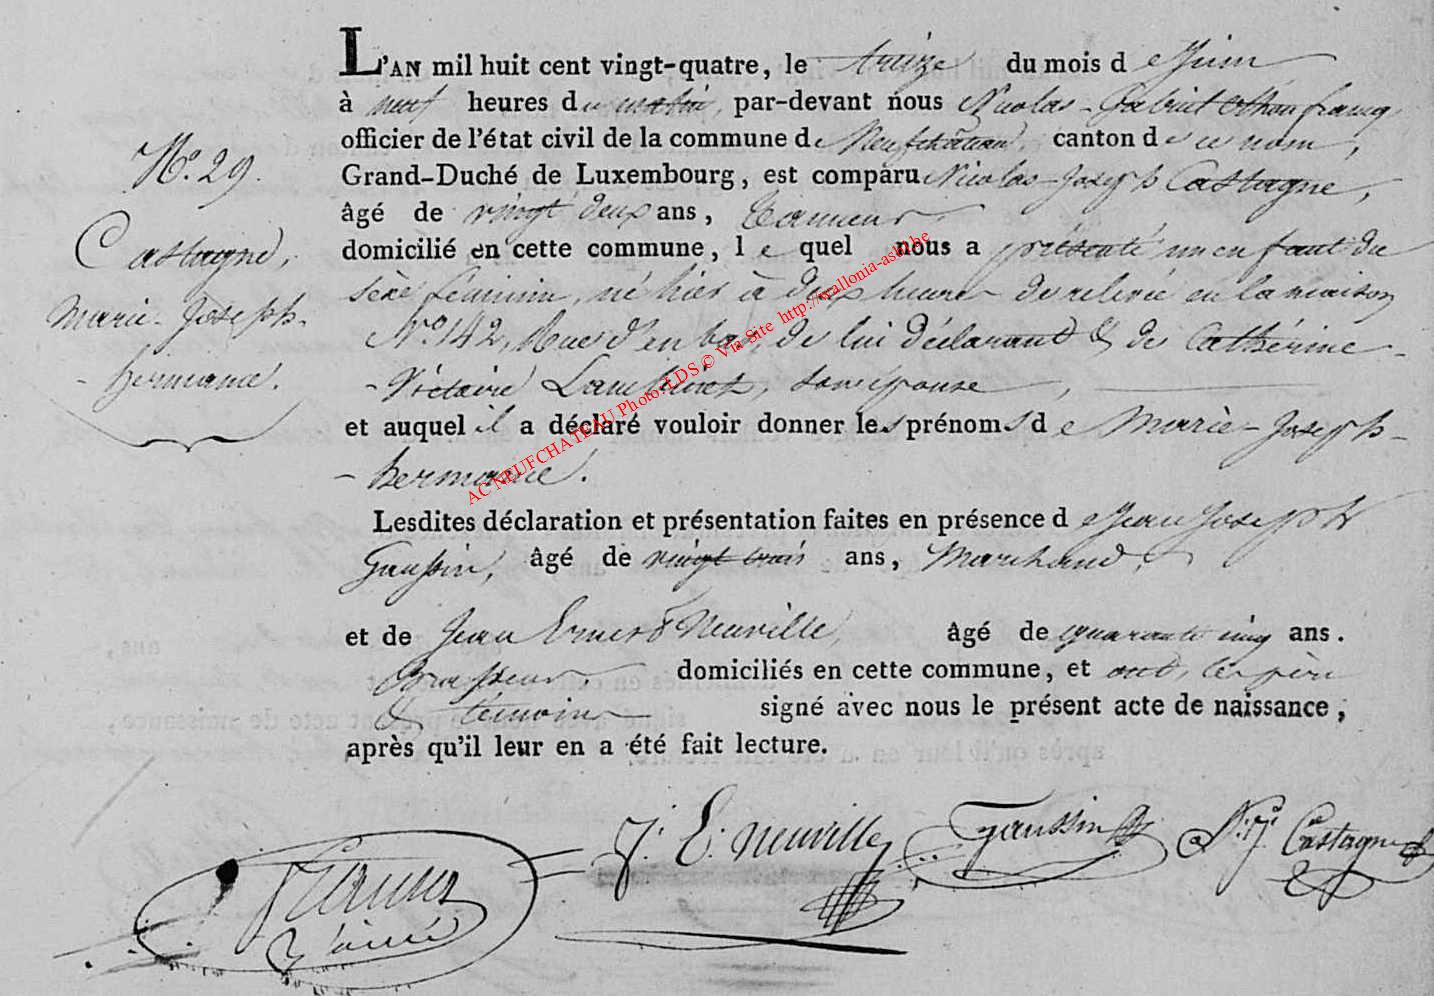 L'AN mil huit cent vingt-quatre, le treize du mois de Juin
à neuf heures du matin, par-devant nous Nicolas-Gabriel
officier de l'état civil de la commune de Neufchateau, canton de ce nom,
Grand-Duché de Luxembourg, est comparu Nicolas-Joseph Castagne,
âgé de vingt deux ans, Tanneur
domicilié en cette commune, le quel nous a présenté un enfant du
sèxe féminin, né hier à deux heures de relevée en la maison
N.º 142, Rue d'en bas, de lui déclarant & de Cathérine-
-Victoire Lambinet, son épouse,
et auquel il a déclaré vouloir donner les prénoms de Marie-Joseph-
-hermanie.
Lesdites déclaration et présentation faites en présence de Jean Joseph
Gaussin, âgé de vingt trois ans, Marchand,
et de Jean Ernest Neuville, âgé de quarante cinq ans.
Brasseur domiciliés en cette commune, et ont, les père
& témoins signé avec nous le présent acte de naissance,
après qu'il leur en a été fait lecture.
N.º 29.
Castagne,
Marie-Joseph-
-hermanie.
J: E: Neuville Gaussin N: J: Castagne
l'ainé
AC NEUFCHATEAU Photo: LDS © Via Site http://wallonia-asbl.be